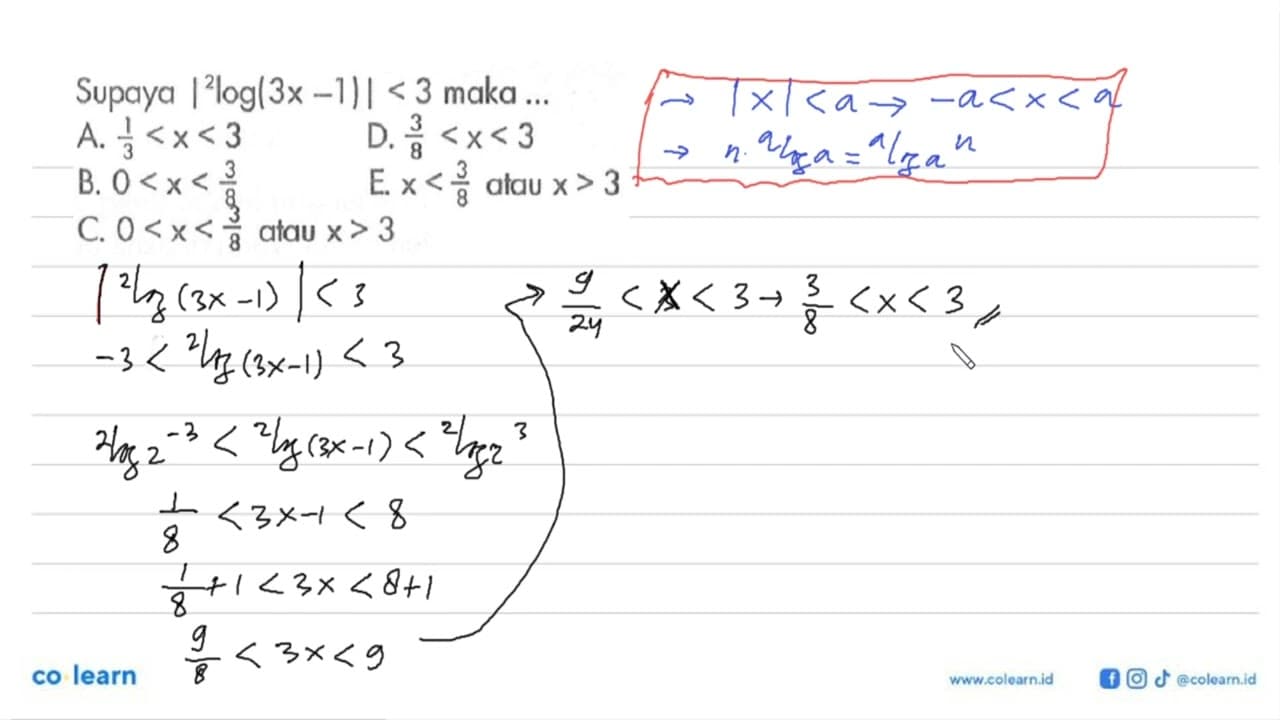 Supaya |²log(3x – 1)| < 3 maka ...
A. 1/3 < x < 3 D. 3/8 < x < 3
B. 0 < x < 3/8 E. x < 3/8 atau x > 3
C. 0 < x < 3/8 atau x > 3
→ |x| < a → -a < x < a
→ n. ᵃlog a = ᵃlog aⁿ
|²log (3x-1)| < 3
-3 < ²log (3x-1) < 3
²log 2⁻³ < ²log (3x-1) < ²log 2³
1/8 < 3x-1 < 8
1/8 + 1 < 3x < 8+1
9/8 < 3x < 9
→ 9/24 < x < 3 → 3/8 < x < 3
co learn
www.colearn.id
@colearn.id